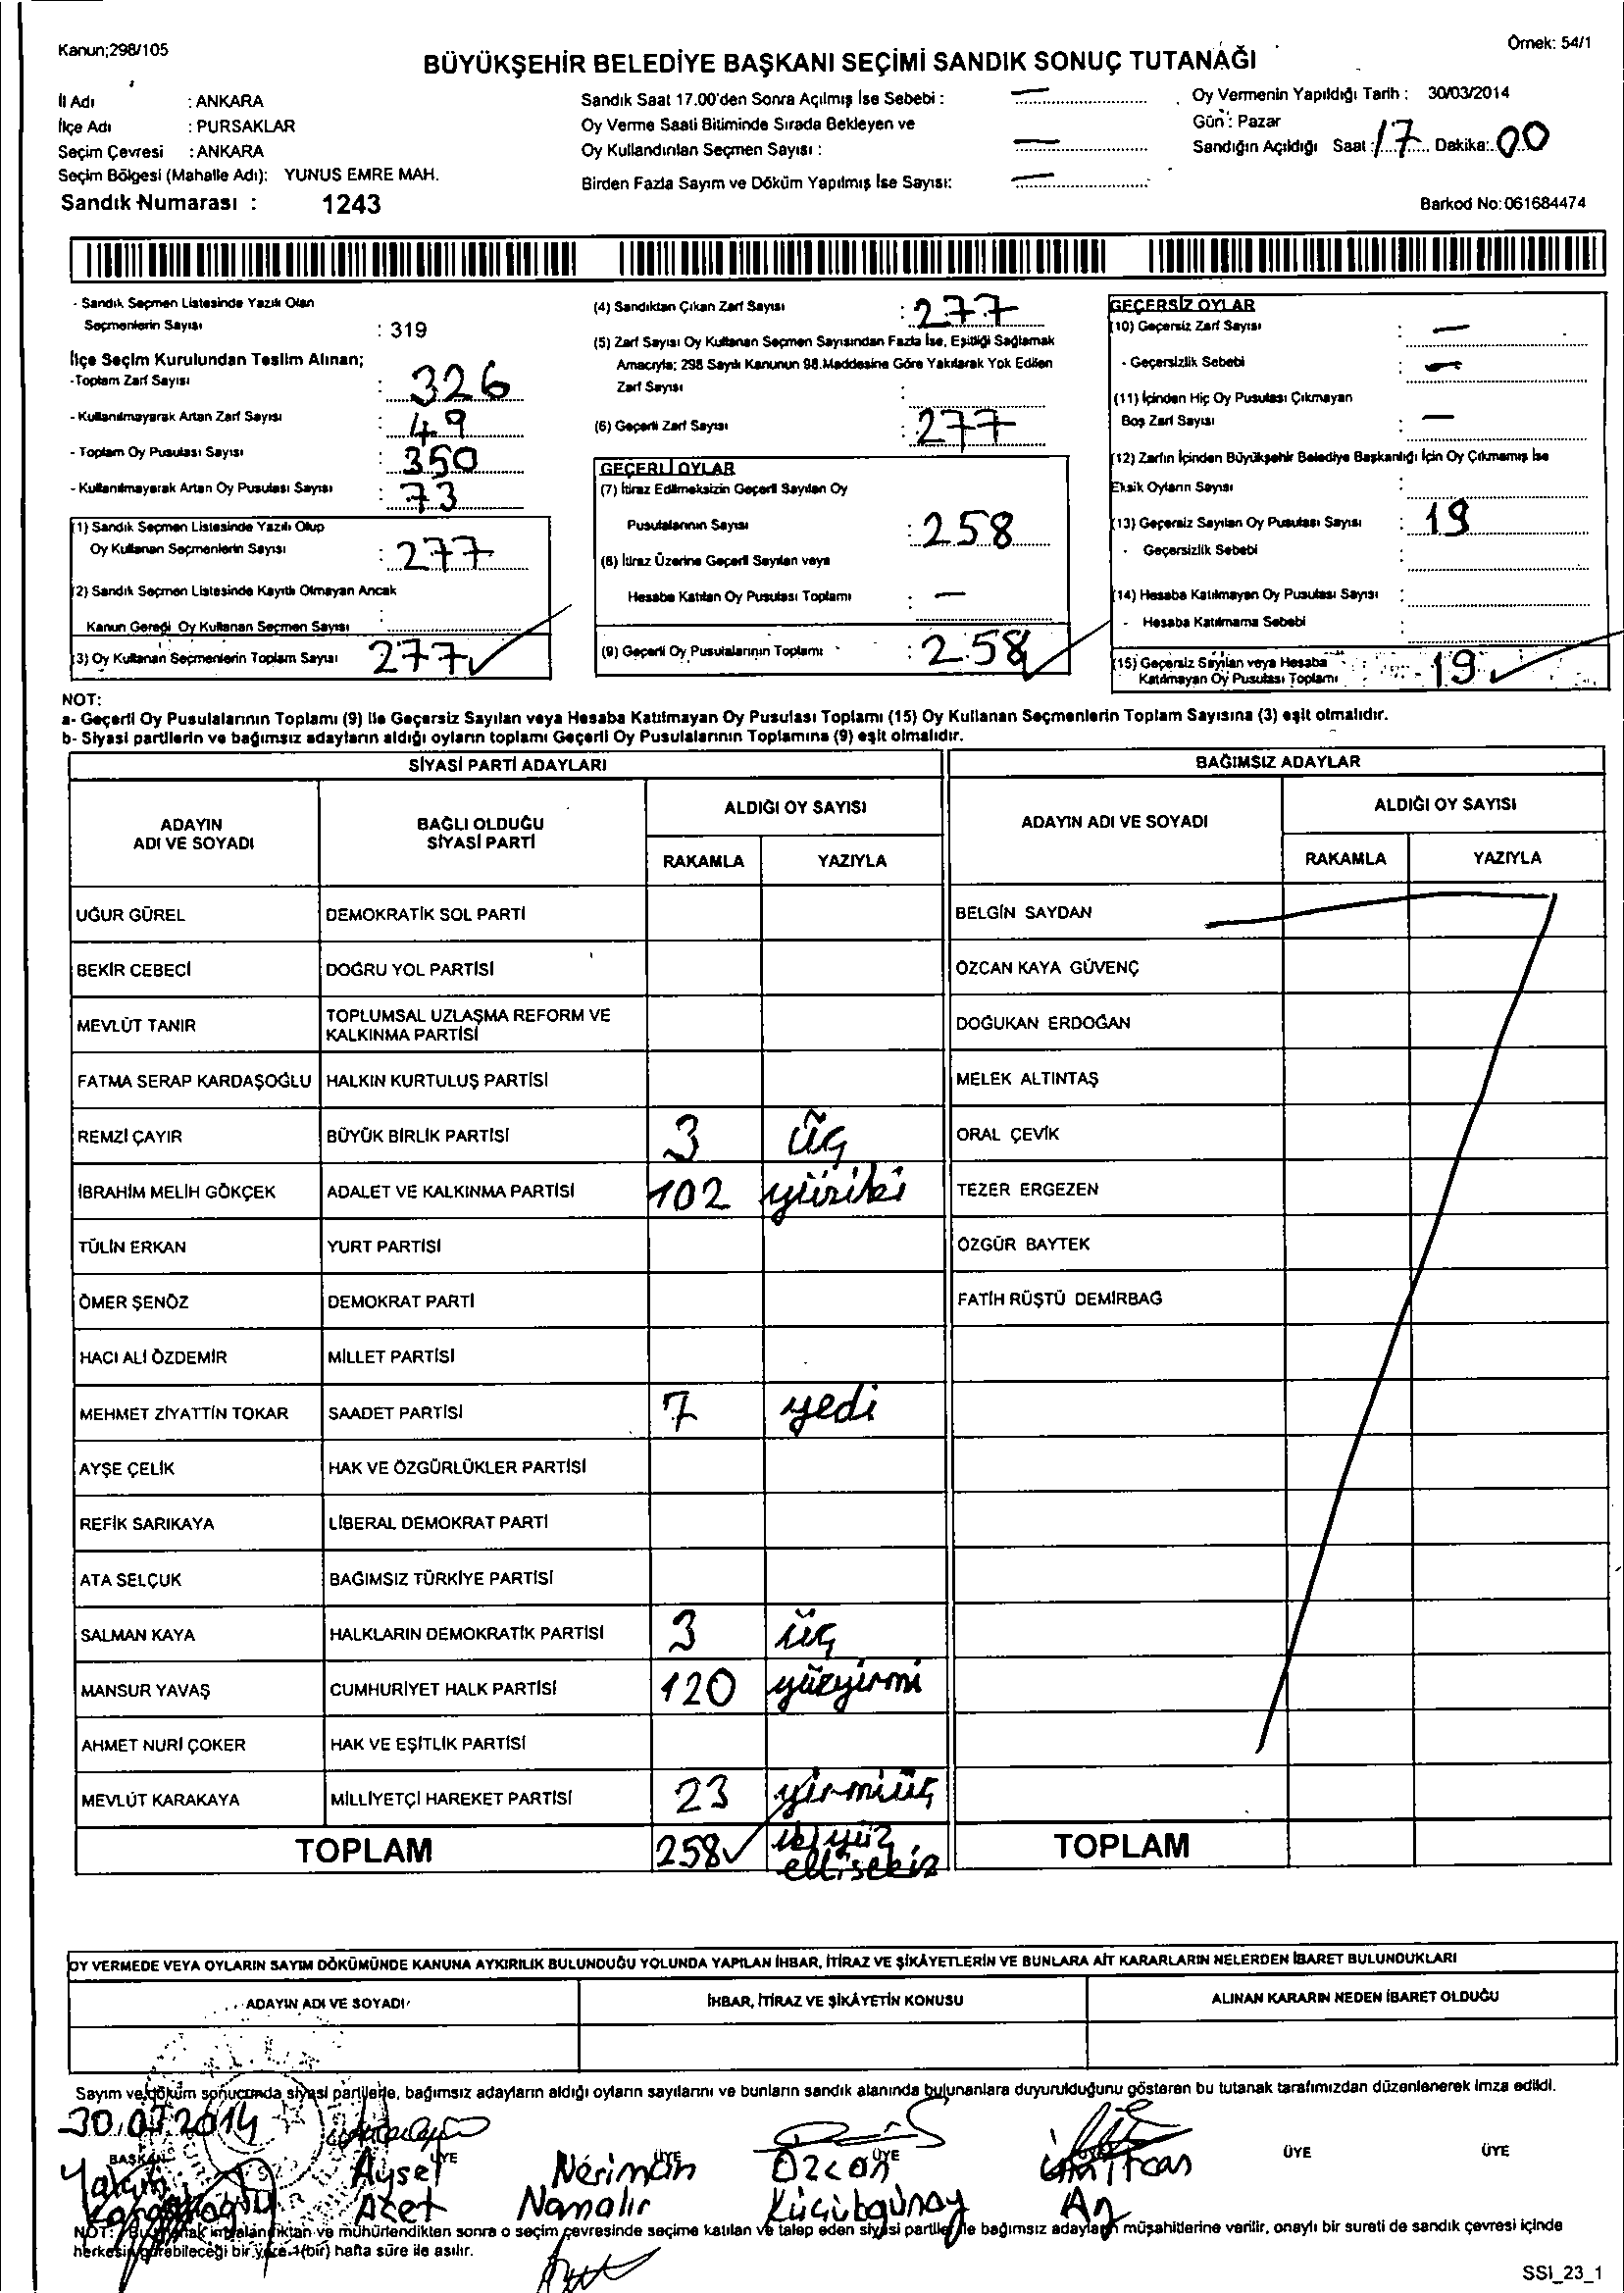 Kanun;298/105
Örnek: 54/1
BÜYÜKŞEHİR BELEDİYE BAŞKANI SEÇİMİ SANDIK SONUÇ TUTANAĞI
İl Adı : ANKARA
İlçe Adı : PURSAKLAR
Seçim Çevresi : ANKARA
Seçim Bölgesi (Mahalle Adı): YUNUS EMRE MAH.
Sandık Numarası : 1243
Sandık Saat 17.00'den Sonra Açılmış İse Sebebi : —
Oy Verme Saati Bitiminde Sırada Bekleyen ve
Oy Kullandırılan Seçmen Sayısı : —
Birden Fazla Sayım ve Döküm Yapılmış İse Sayısı: —
Oy Vermenin Yapıldığı Tarih : 30/03/2014
Gün : Pazar
Sandığın Açıldığı Saat : 17 Dakika: 00
Barkod No:061684474
- Sandık Seçmen Listesinde Yazılı Olan
Seçmenlerin Sayısı : 319
İlçe Seçim Kurulundan Teslim Alınan;
-Toplam Zarf Sayısı : 326
- Kullanılmayarak Artan Zarf Sayısı : 49
- Toplam Oy Pusulası Sayısı : 350
- Kullanılmayarak Artan Oy Pusulası Sayısı : 73
(1) Sandık Seçmen Listesinde Yazılı Olup
Oy Kullanan Seçmenlerin Sayısı : 277
(2) Sandık Seçmen Listesinde Kayıtlı Olmayan Ancak
Kanun Gereği Oy Kullanan Seçmen Sayısı :
(3) Oy Kullanan Seçmenlerin Toplam Sayısı 277
(4) Sandıktan Çıkan Zarf Sayısı : 277
(5) Zarf Sayısı Oy Kullanan Seçmen Sayısından Fazla İse, Eşitliği Sağlamak
Amacıyla; 298 Sayılı Kanunun 98.Maddesine Göre Yakılarak Yok Edilen
Zarf Sayısı :
(6) Geçerli Zarf Sayısı : 277
GEÇERLİ OYLAR
(7) İtiraz Edilmeksizin Geçerli Sayılan Oy
Pusulalarının Sayısı : 258
(8) İtiraz Üzerine Geçerli Sayılan veya
Hesaba Katılan Oy Pusulası Toplamı : —
(9) Geçerli Oy Pusulalarının Toplamı : 258
GEÇERSİZ OYLAR
(10) Geçersiz Zarf Sayısı : —
- Geçersizlik Sebebi : —
(11) İçinden Hiç Oy Pusulası Çıkmayan
Boş Zarf Sayısı : —
(12) Zarfın İçinden Büyükşehir Belediye Başkanlığı İçin Oy Çıkmamış İse
Eksik Oyların Sayısı :
(13) Geçersiz Sayılan Oy Pusulası Sayısı : 19
- Geçersizlik Sebebi :
(14) Hesaba Katılmayan Oy Pusulası Sayısı :
- Hesaba Katılmama Sebebi :
(15) Geçersiz Sayılan veya Hesaba
Katılmayan Oy Pusulası Toplamı : 19
NOT:
a- Geçerli Oy Pusulalarının Toplamı (9) ile Geçersiz Sayılan veya Hesaba Katılmayan Oy Pusulası Toplamı (15) Oy Kullanan Seçmenlerin Toplam Sayısına (3) eşit olmalıdır.
b- Siyasi partilerin ve bağımsız adayların aldığı oyların toplamı Geçerli Oy Pusulalarının Toplamına (9) eşit olmalıdır.
SİYASİ PARTİ ADAYLARI
ADAYIN ADI VE SOYADI
BAĞLI OLDUĞU SİYASİ PARTİ
ALDIĞI OY SAYISI
RAKAMLA YAZIYLA
UĞUR GÜREL DEMOKRATİK SOL PARTİ
BEKİR CEBECİ DOĞRU YOL PARTİSİ
MEVLÜT TANIR TOPLUMSAL UZLAŞMA REFORM VE
KALKINMA PARTİSİ
FATMA SERAP KARDAŞOĞLU HALKIN KURTULUŞ PARTİSİ
REMZİ ÇAYIR BÜYÜK BİRLİK PARTİSİ 3 üç
İBRAHİM MELİH GÖKÇEK ADALET VE KALKINMA PARTİSİ 102 yüziki
TÜLİN ERKAN YURT PARTİSİ
ÖMER ŞENÖZ DEMOKRAT PARTİ
HACI ALİ ÖZDEMİR MİLLET PARTİSİ
MEHMET ZİYATTİN TOKAR SAADET PARTİSİ 7 yedi
AYŞE ÇELİK HAK VE ÖZGÜRLÜKLER PARTİSİ
REFİK SARIKAYA LİBERAL DEMOKRAT PARTİ
ATA SELÇUK BAĞIMSIZ TÜRKİYE PARTİSİ
SALMAN KAYA HALKLARIN DEMOKRATİK PARTİSİ 3 üç
MANSUR YAVAŞ CUMHURİYET HALK PARTİSİ 120 yüzyirmi
AHMET NURİ ÇOKER HAK VE EŞİTLİK PARTİSİ
MEVLÜT KARAKAYA MİLLİYETÇİ HAREKET PARTİSİ 23 yirmiüç
TOPLAM 258 ikiyüz
ellisekiz
BAĞIMSIZ ADAYLAR
ADAYIN ADI VE SOYADI
ALDIĞI OY SAYISI
RAKAMLA YAZIYLA
BELGİN SAYDAN
ÖZCAN KAYA GÜVENÇ
DOĞUKAN ERDOĞAN
MELEK ALTINTAŞ
ORAL ÇEVİK
TEZER ERGEZEN
ÖZGÜR BAYTEK
FATİH RÜŞTÜ DEMİRBAĞ
TOPLAM
OY VERMEDE VEYA OYLARIN SAYIM DÖKÜMÜNDE KANUNA AYKIRILIK BULUNDUĞU YOLUNDA YAPILAN İHBAR, İTİRAZ VE ŞİKÂYETLERİN VE BUNLARA AİT KARARLARIN NELERDEN İBARET BULUNDUKLARI
ADAYIN ADI VE SOYADI
İHBAR, İTİRAZ VE ŞİKÂYETİN KONUSU
ALINAN KARARIN NEDEN İBARET OLDUĞU
Sayım ve döküm sonucunda siyasi partilerle, bağımsız adayların aldığı oyların sayılarını ve bunların sandık alanında bulunanlara duyurulduğunu gösteren bu tutanak tarafımızdan düzenlenerek imza edildi.
BAŞKAN ÜYE ÜYE ÜYE ÜYE ÜYE ÜYE
Aysel Neriman Özcan
Namalır Küçükgünay
NOT: Bu tutanak imzalandıktan ve mühürlendikten sonra o seçim çevresinde seçime katılan ve talep eden siyasi partiler ile bağımsız adayların müşahitlerine verilir, onaylı bir sureti de sandık çevresi içinde
herkesin görebileceği bir yere 1(bir) hafta süre ile asılır.
SSI_23_1